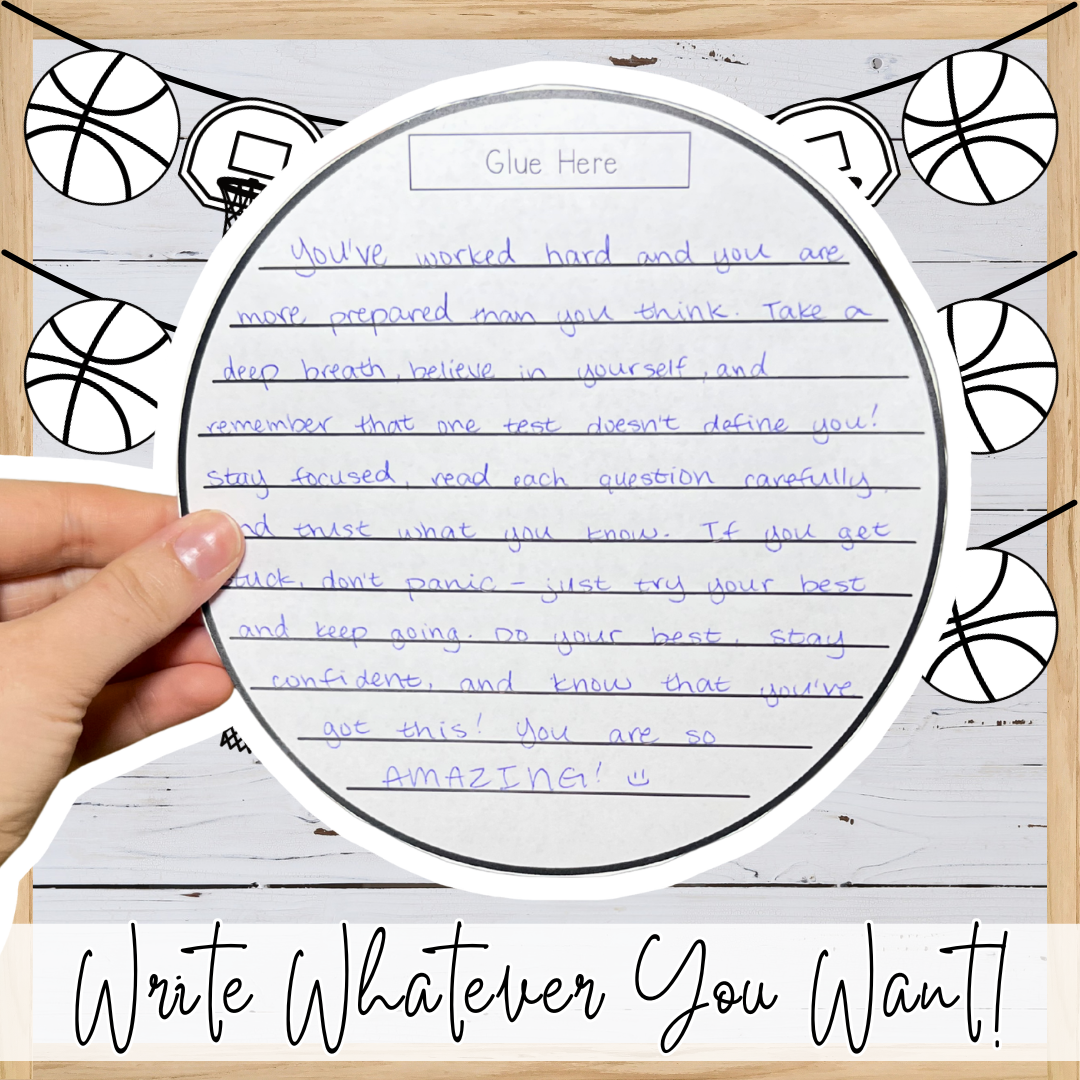 Glue Here
You've worked hard and you are
more prepared than you think. Take a
deep breath, believe in yourself, and
remember that one test doesn't define you!
stay focused, read each question carefully,
nd trust what you know. If you get
tuck, don't panic - just try your best
and keep going. Do your best, stay
confident, and know that you've
got this! You are so
AMAZING! ☺
Write Whatever You Want!